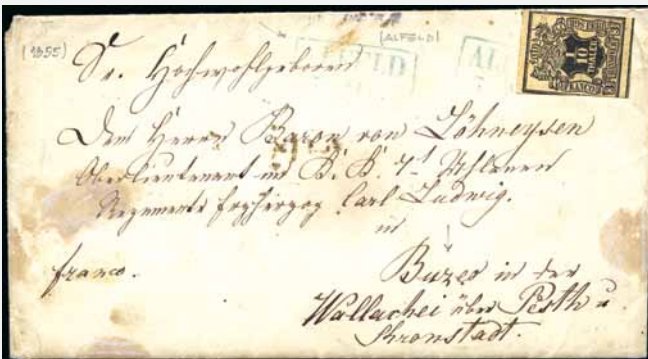 (1855)
[ALFELD]
ALFELD
AL
10
THALER
FRANCO
Sr. Hochwohlgeboren
Dem Herrn Baron von Löhneysen
Oberlieutenant im K. K. 7t Uhlanen
Regimente Erzherzog Carl Ludwig.
in
franco.
Buzeo in der
Wallachei über Pesth u
Chronstadt.